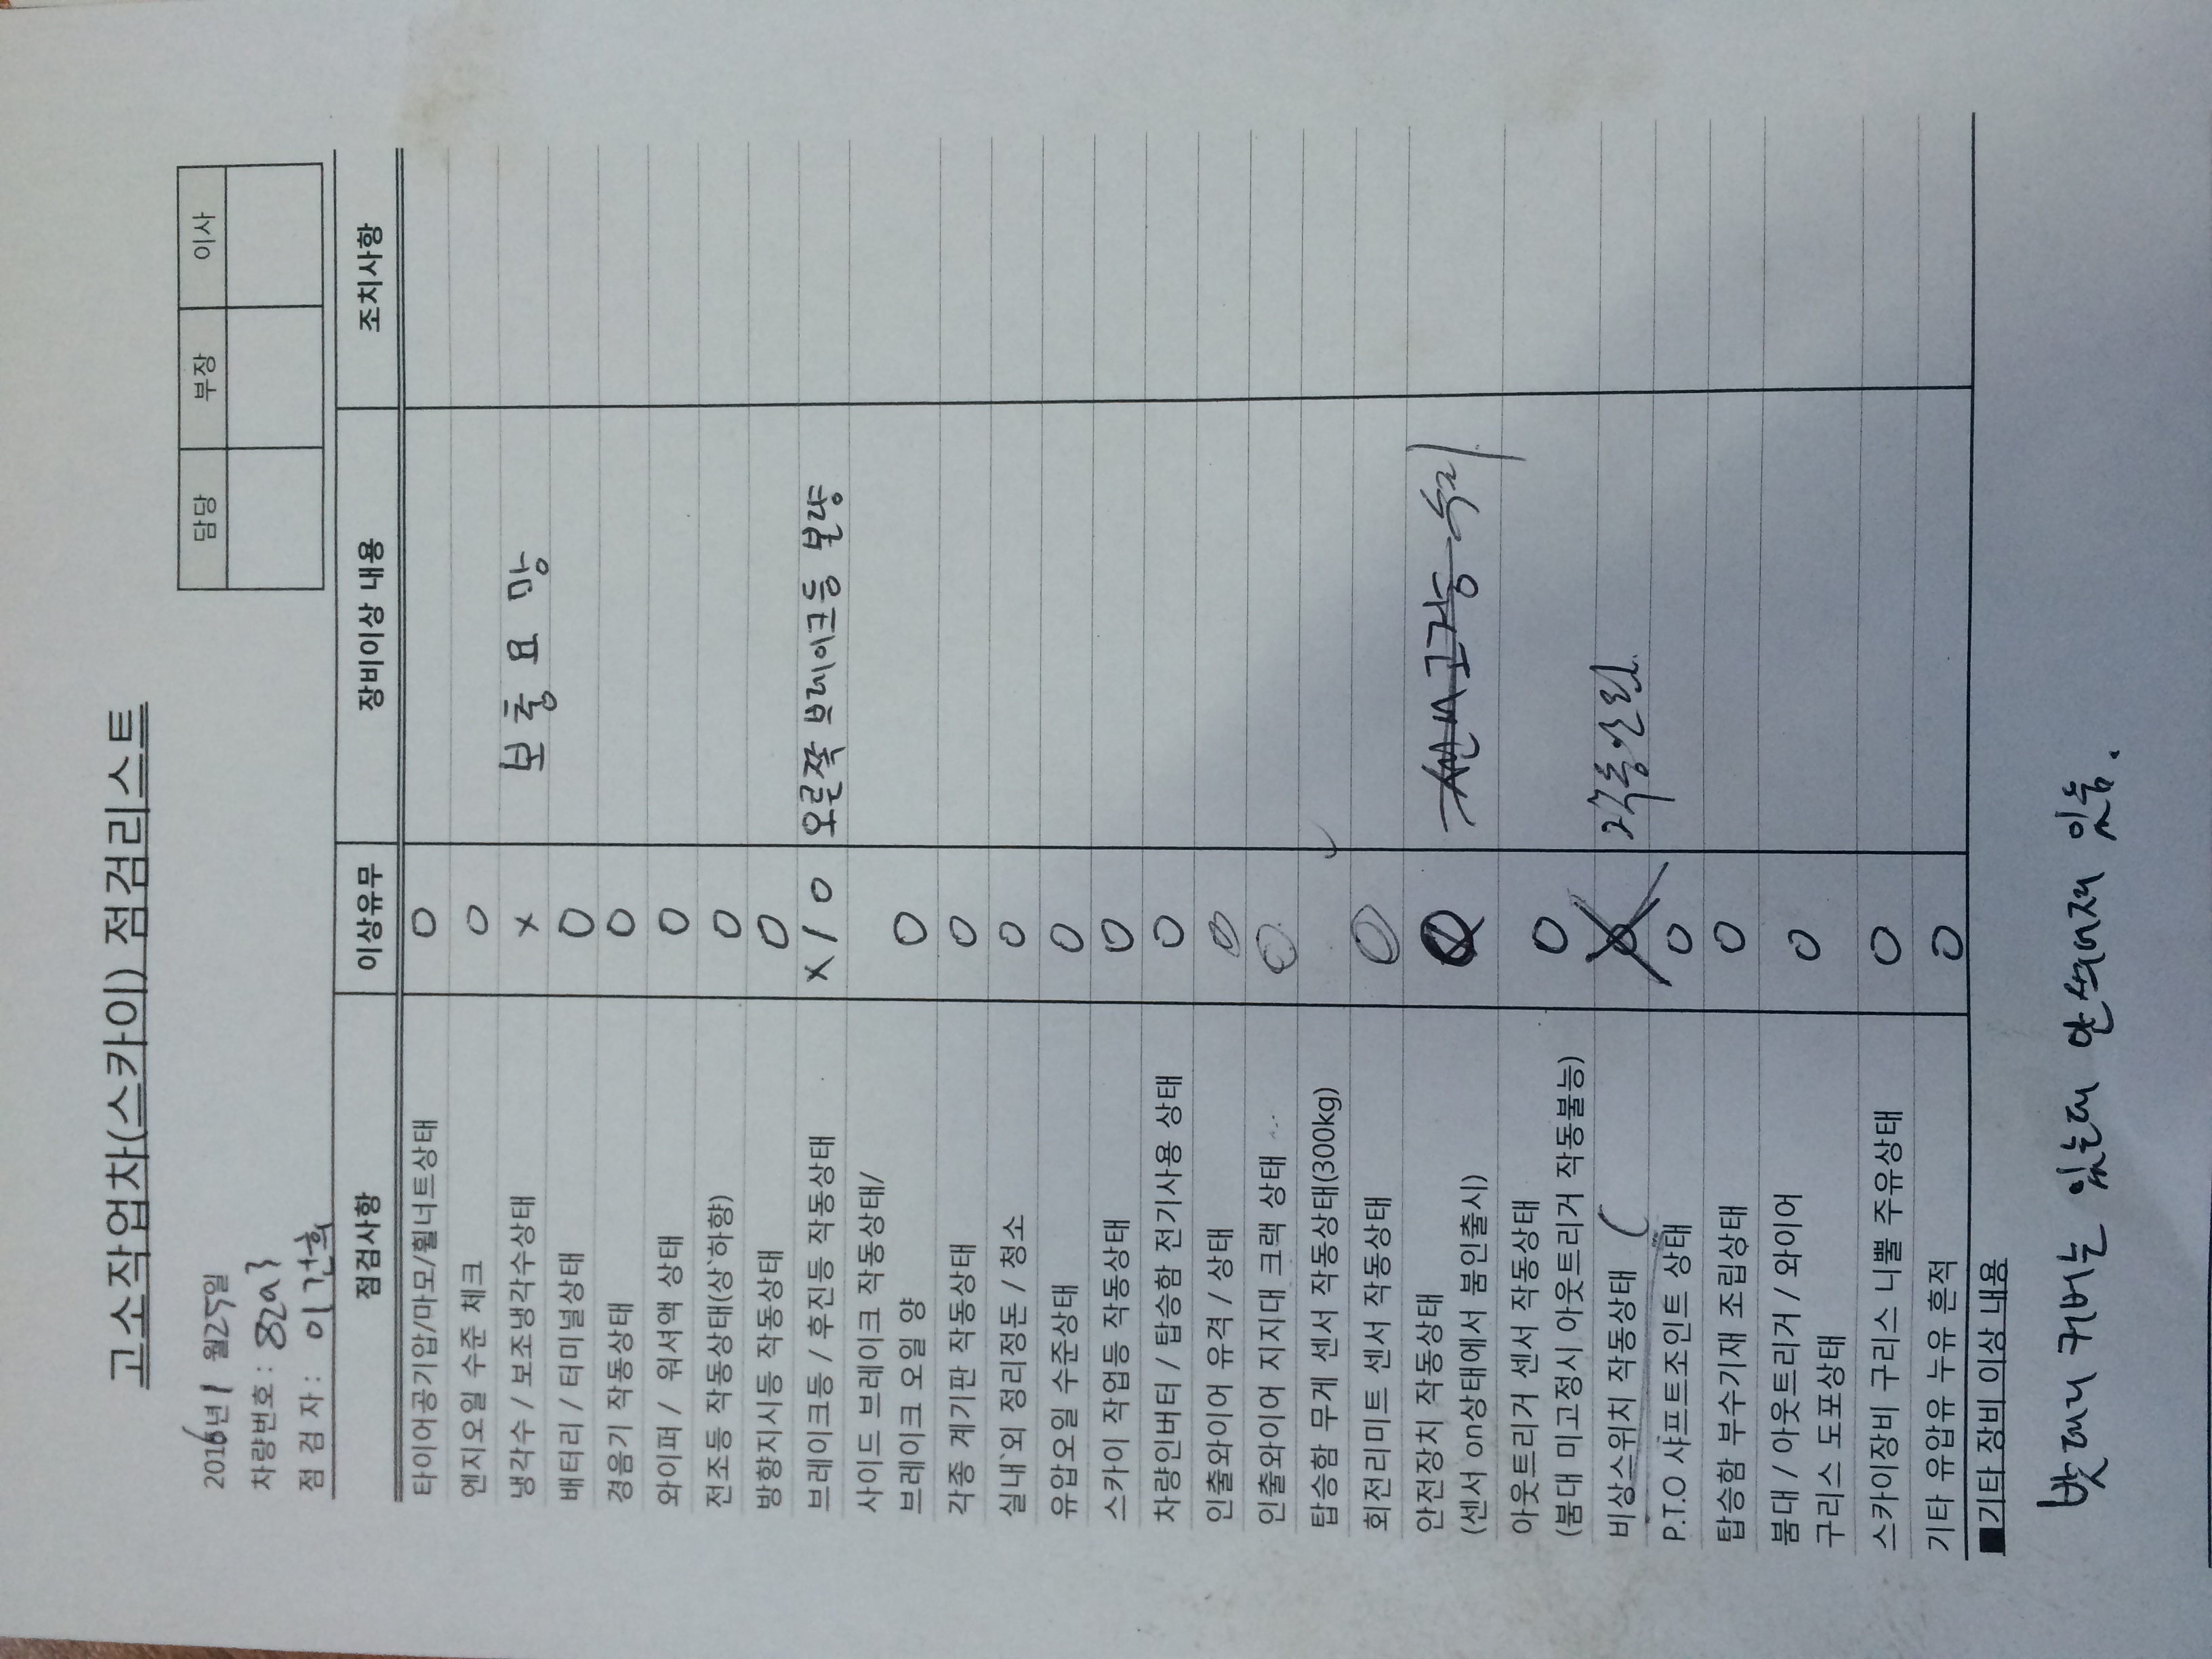 고소작업차(스카이) 점검리스트
담당 부장 이사
2016년 1 월25일
차량번호 : 82가
점 검 자 : 이건희
점검사항 이상유무 장비이상 내용 조치사항
타이어공기압/마모/휠너트상태 O
엔지오일 수준 체크 O
냉각수 / 보조냉각수상태 x 보충 요 망
배터리 / 터미널상태 O
경음기 작동상태 O
와이퍼 / 워셔액 상태 O
전조등 작동상태(상`하향) O
방향지시등 작동상태 O
브레이크등 / 후진등 작동상태 x / O 오른쪽 브레이크등 불량
사이드 브레이크 작동상태/
브레이크 오일 양 O
각종 계기판 작동상태 O
실내`외 정리정돈 / 청소 O
유압오일 수준상태 O
스카이 작업등 작동상태 O
차량인버터 / 탑승함 전기사용 상태 O
인출와이어 유격 / 상태 O
인출와이어 지지대 크랙 상태 O
탑승함 무게 센서 작동상태(300kg)
회전리미트 센서 작동상태 O
안전장치 작동상태 O
(센서 on상태에서 붐인출시)
아웃트리거 센서 작동상태 O
(붐대 미고정시 아웃트리거 작동불능)
비상스위치 작동상태 X 작동안됨
P.T.O 샤프트조인트 상태 O
탑승함 부수기재 조립상태 O
붐대 / 아웃트리거 / 와이어
구리스 도포상태 O
스카이장비 구리스 니쁠 주유상태 O
기타 유압유 누유 흔적 O
■기타 장비 이상 내용
밧데리 커버는 있는데 안 씌여져 있음.